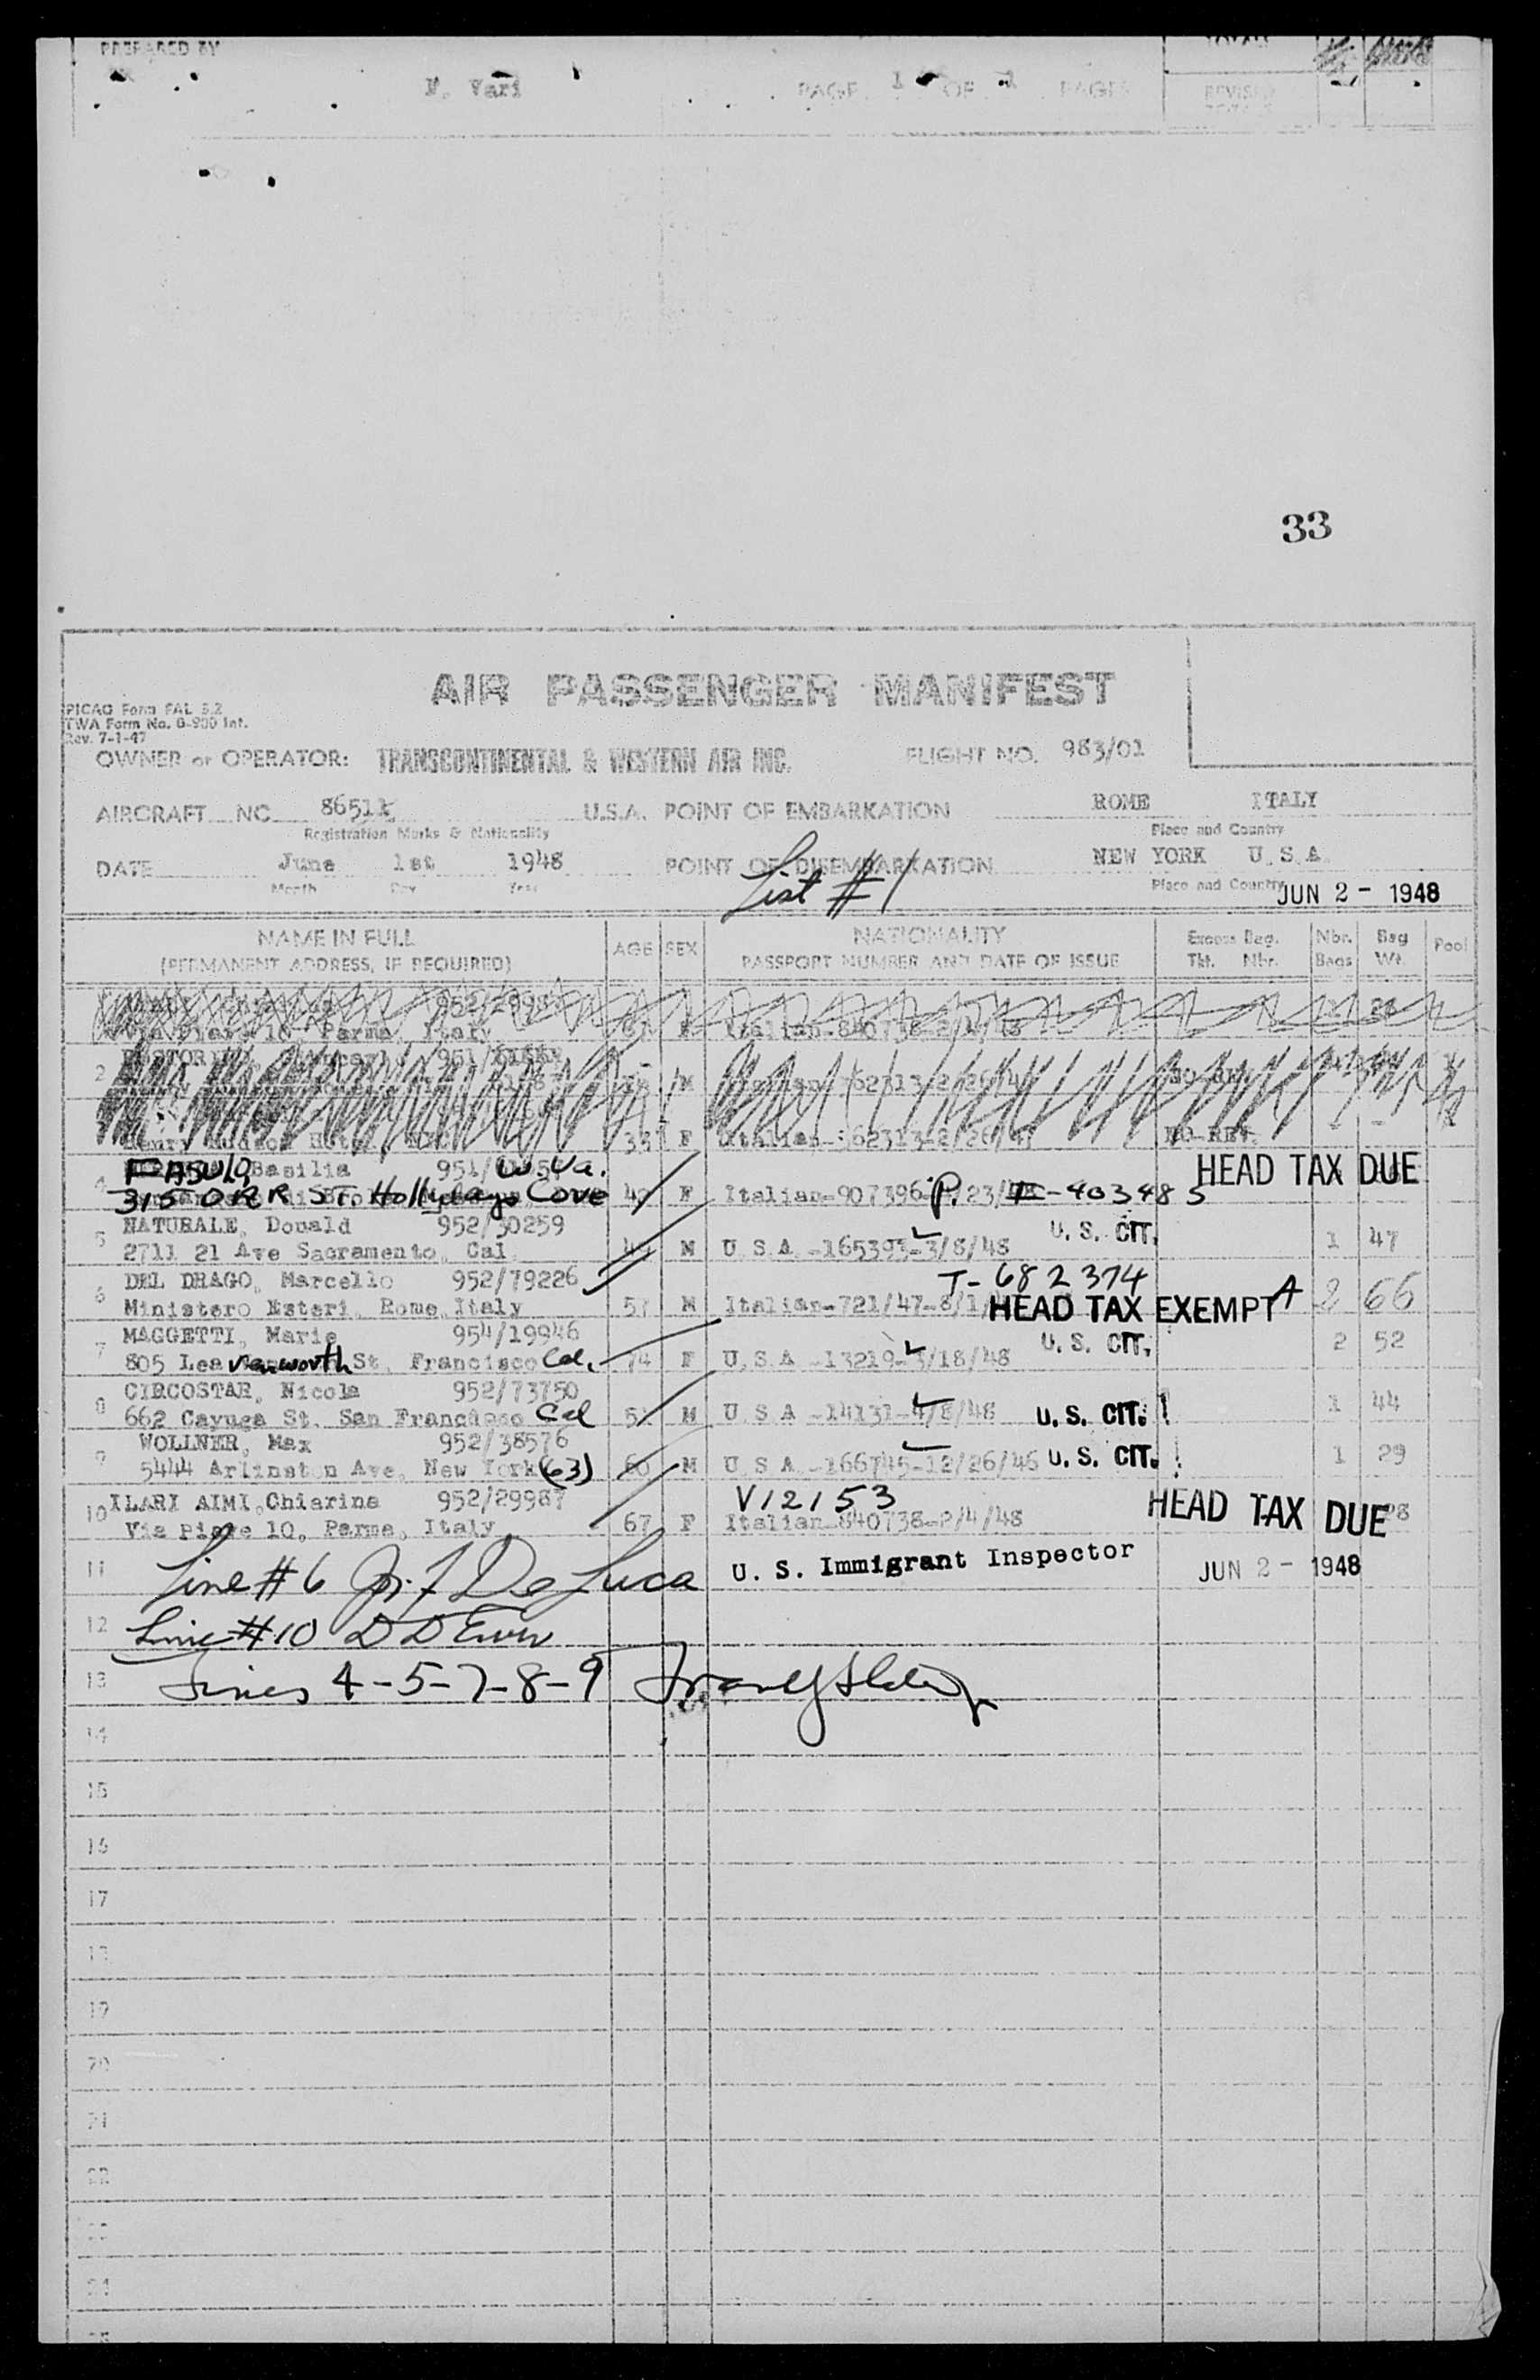 PREPARED BY
F. Vari PAGE 1 OF 1 PAGES
REVISED
33
AIR PASSENGER MANIFEST
PICAO Form FAL 3.2
TWA Form No. 0-900 Int.
Rev. 7-1-47
OWNER or OPERATOR: TRANSCONTINENTAL & WESTERN AIR INC. FLIGHT NO. 983/01
AIRCRAFT NC 86511 U.S.A. POINT OF EMBARKATION ROME ITALY
Registration Marks & Nationality Place and Country
DATE June 1st 1948 POINT OF DISEMBARKATION NEW YORK U.S.A.
Month Day Year Place and Country
List #1 JUN 2 - 1948
NAME IN FULL AGE SEX NATIONALITY Excess Bag. Nbr. Bag Pool
(PERMANENT ADDRESS, IF REQUIRED) PASSPORT NUMBER AND DATE OF ISSUE Tkt. Nbr. Bags Wt.
Parma, Italy Italian-840738-2/4/48
2 M
33 F Italian-362313-2/26/4 NO-REV.
4 FASULO, Basilia 951/ W. Va. HEAD TAX DUE
315 ORR ST. Hollydays Cove F Italian-907396- P. 23/ 403485
5 NATURALE, Donald 952/30259 U. S. CIT.
2711 21 Ave Sacramento, Cal M U.S.A.-165393-3/8/48 1 47
6 DEL DRAGO, Marcello 952/79226 T-682374
Ministero Esteri, Rome, Italy 57 M Italian-721/47-8/1/ HEAD TAX EXEMPT A 2 66
7 MAGGETTI, Marie 954/19946 U. S. CIT. 2 52
805 Leavenworth St, Francisco Cal. 74 F U.S.A -13219-3/18/48
8 CIRCOSTAR, Nicola 952/73750 1 44
662 Cayuga St. San Francisco Cal M U S A -14131-4/8/48 U. S. CIT.
9 WOLLNER, Max 952/38576 1 29
5444 Arlington Ave, New York (63) 60 M U S A -166745-12/26/46 U. S. CIT.
10 ILARI AIMI, Chiarina 952/29987 V12153 HEAD TAX DUE 28
Via Piave 10, Parma, Italy 67 F Italian-840738-2/4/48
11 Line #6 De Luca U. S. Immigrant Inspector JUN 2 - 1948
12 Line #10 D D
13 Lines 4-5-7-8-9
14
15
16
17
18
19
20
21
22
23
24
25